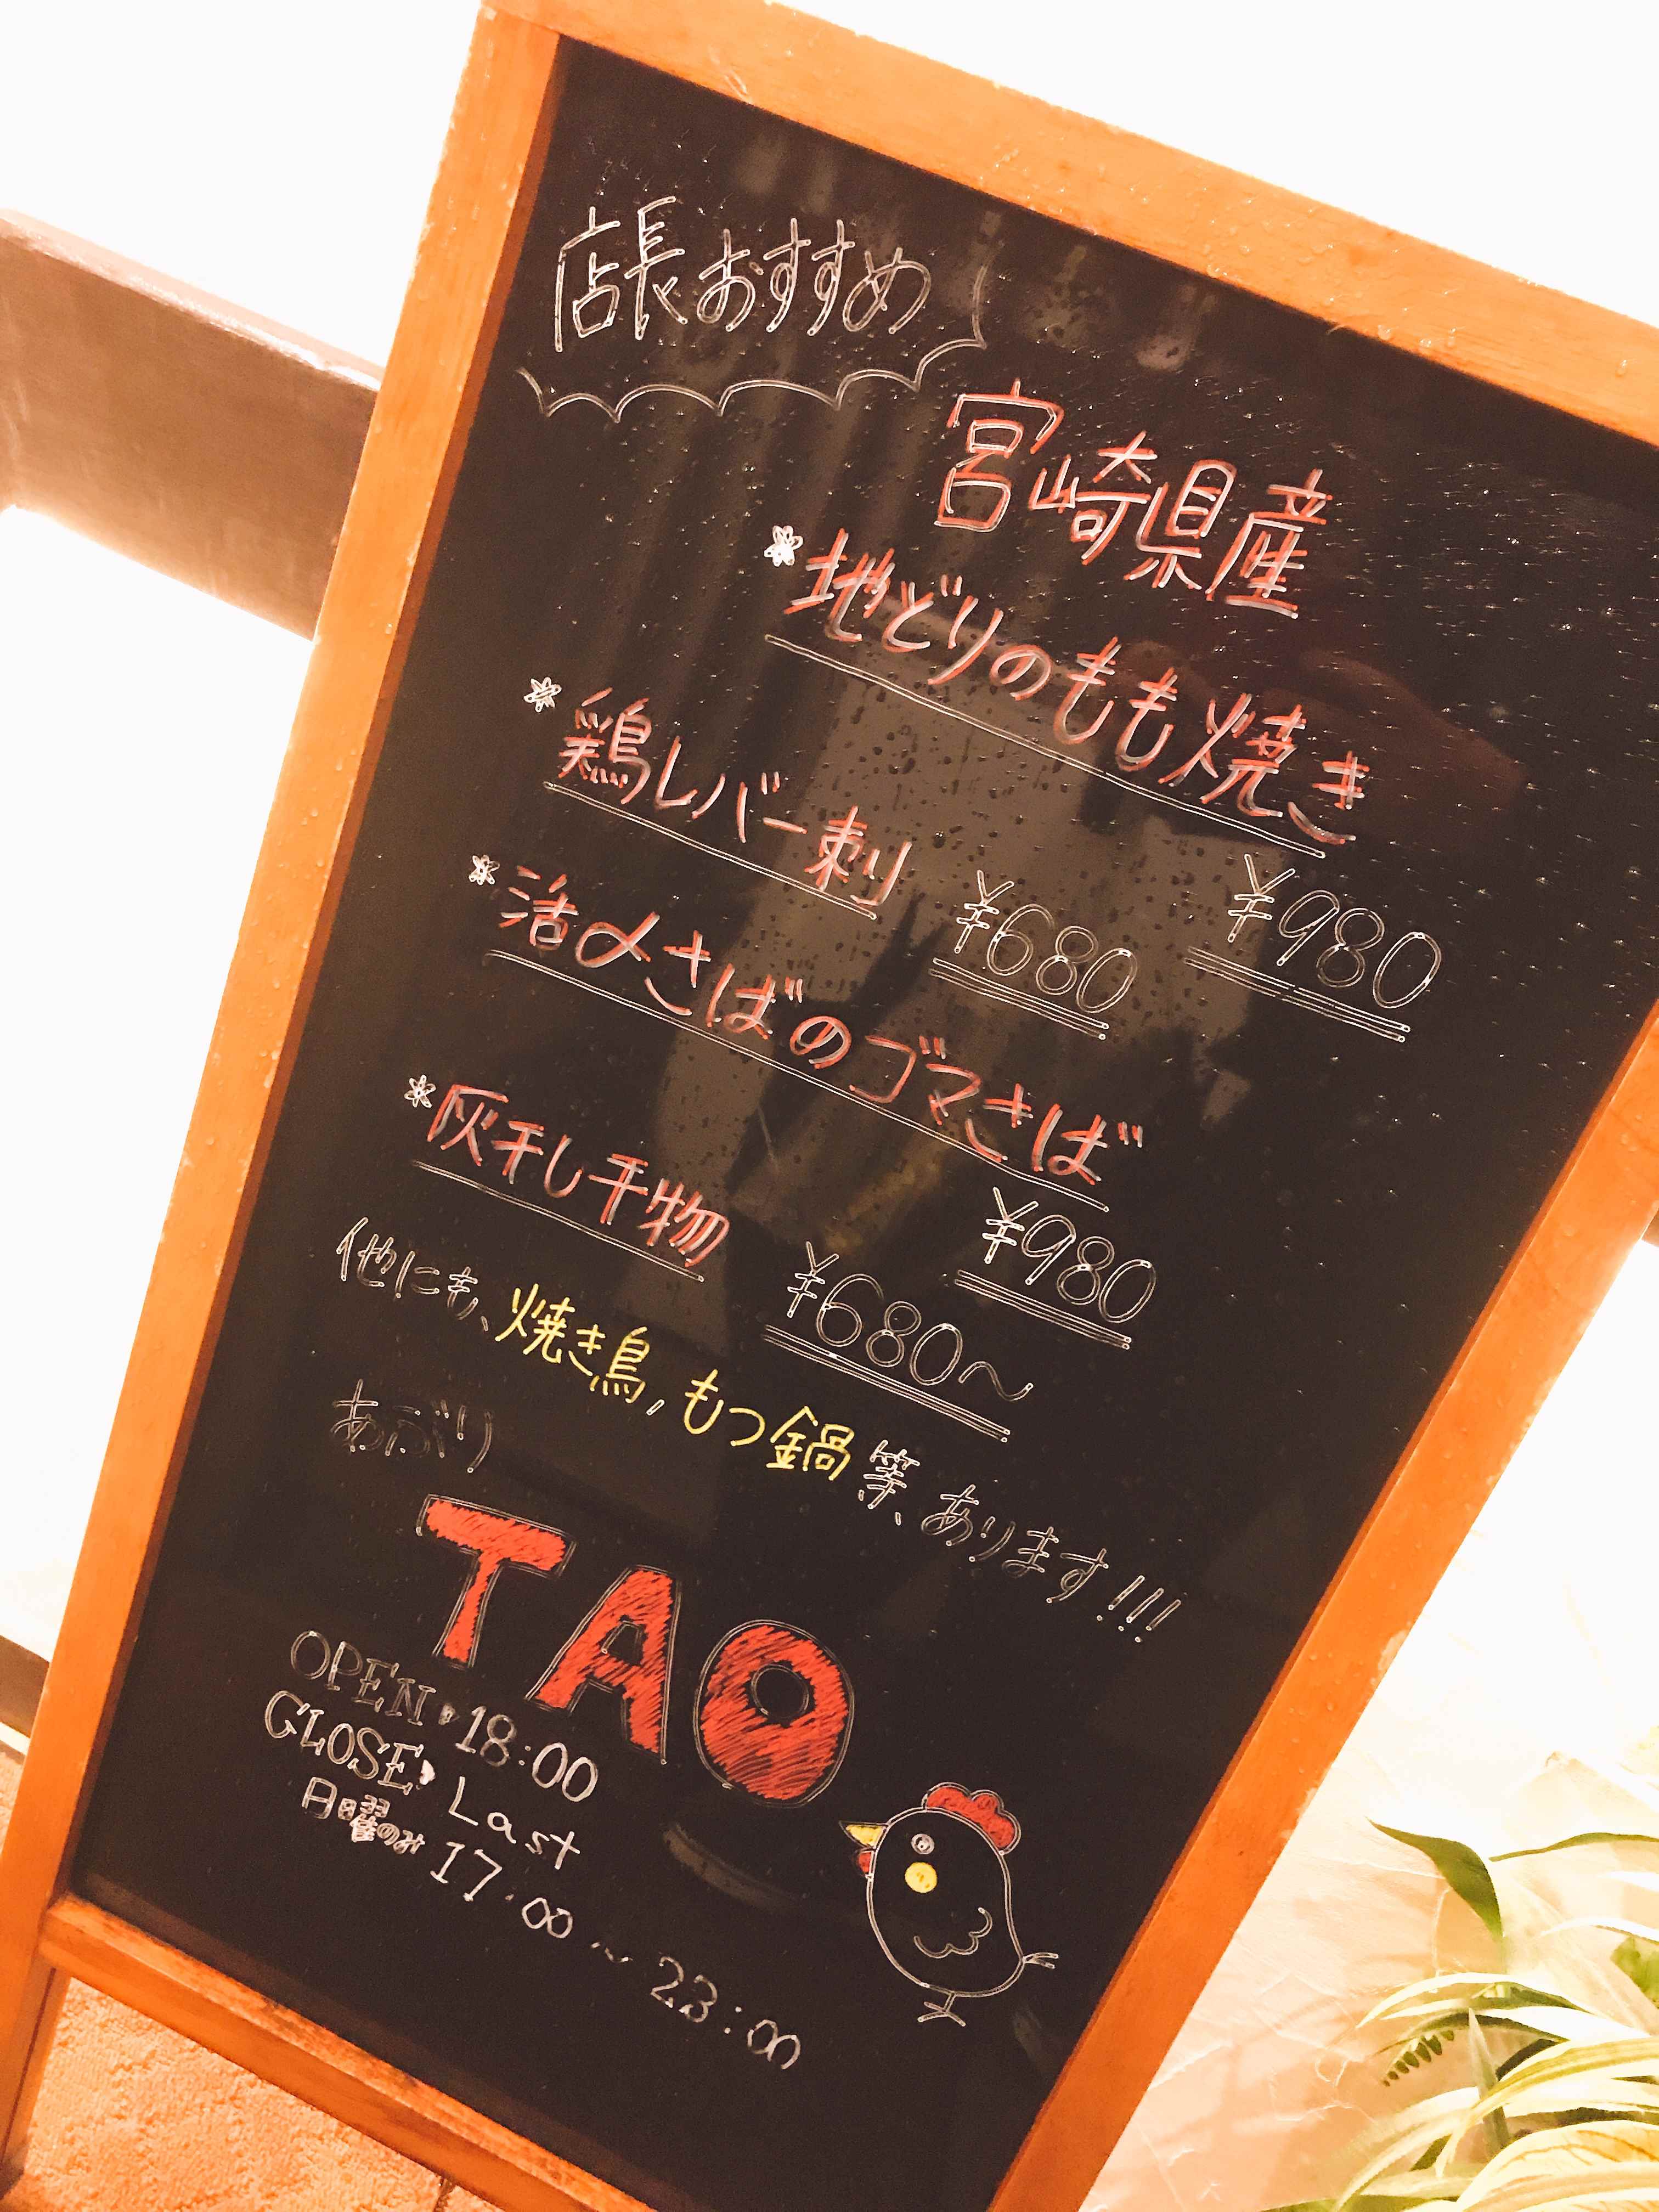 店長おすすめ
宮崎県産
*地どりのもも焼き
¥980
*鶏レバー刺 ¥680
*活〆さばのゴマさば
¥980
*灰干し干物 ¥680～
他にも、焼き鳥,もつ鍋等、あります!!!
あぶり
TAO
OPEN 18:00
CLOSE Last
日曜のみ 17:00～23:00